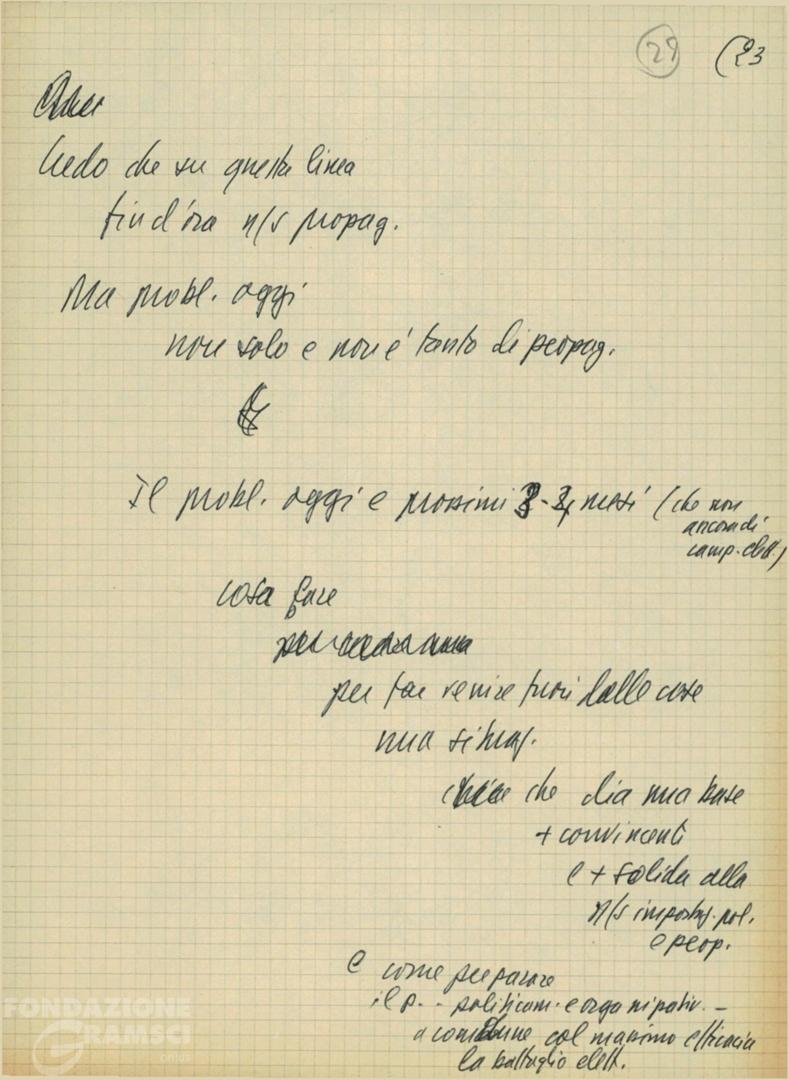 29 (23
Credo che su questa linea
fin d'ora n/s propag.
Ma probl. oggi
non solo e non è tanto di propag.
Il probl. oggi e prossimi 3-4 mesi (che non
ancora di
camp. elett.)
cosa fare
per far venire fuori dalle cose
una situaz.
che dia una base
+ convincenti
e + solida alla
n/s impostaz. pol.
e prop.
e come preparare
il p. - politicam. e organizzativ. -
a condurre col massimo efficacia
la battaglia elett.
FONDAZIONE
GRAMSCI
onlus